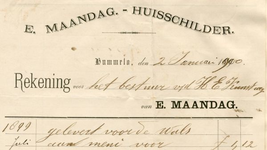 E. MAANDAG. - HUISSCHILDER.
Bommeln, den 2 Januari 1900
Rekening voor het bestuur v/d H. E.
van E. MAANDAG.
1899 gelevert voor de
Juli aan meni voor f 4,12